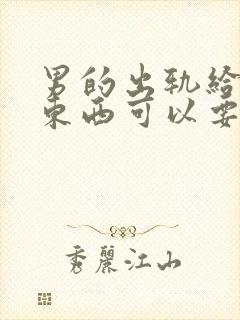 男的出轨给
东西可以要
秀麗江山